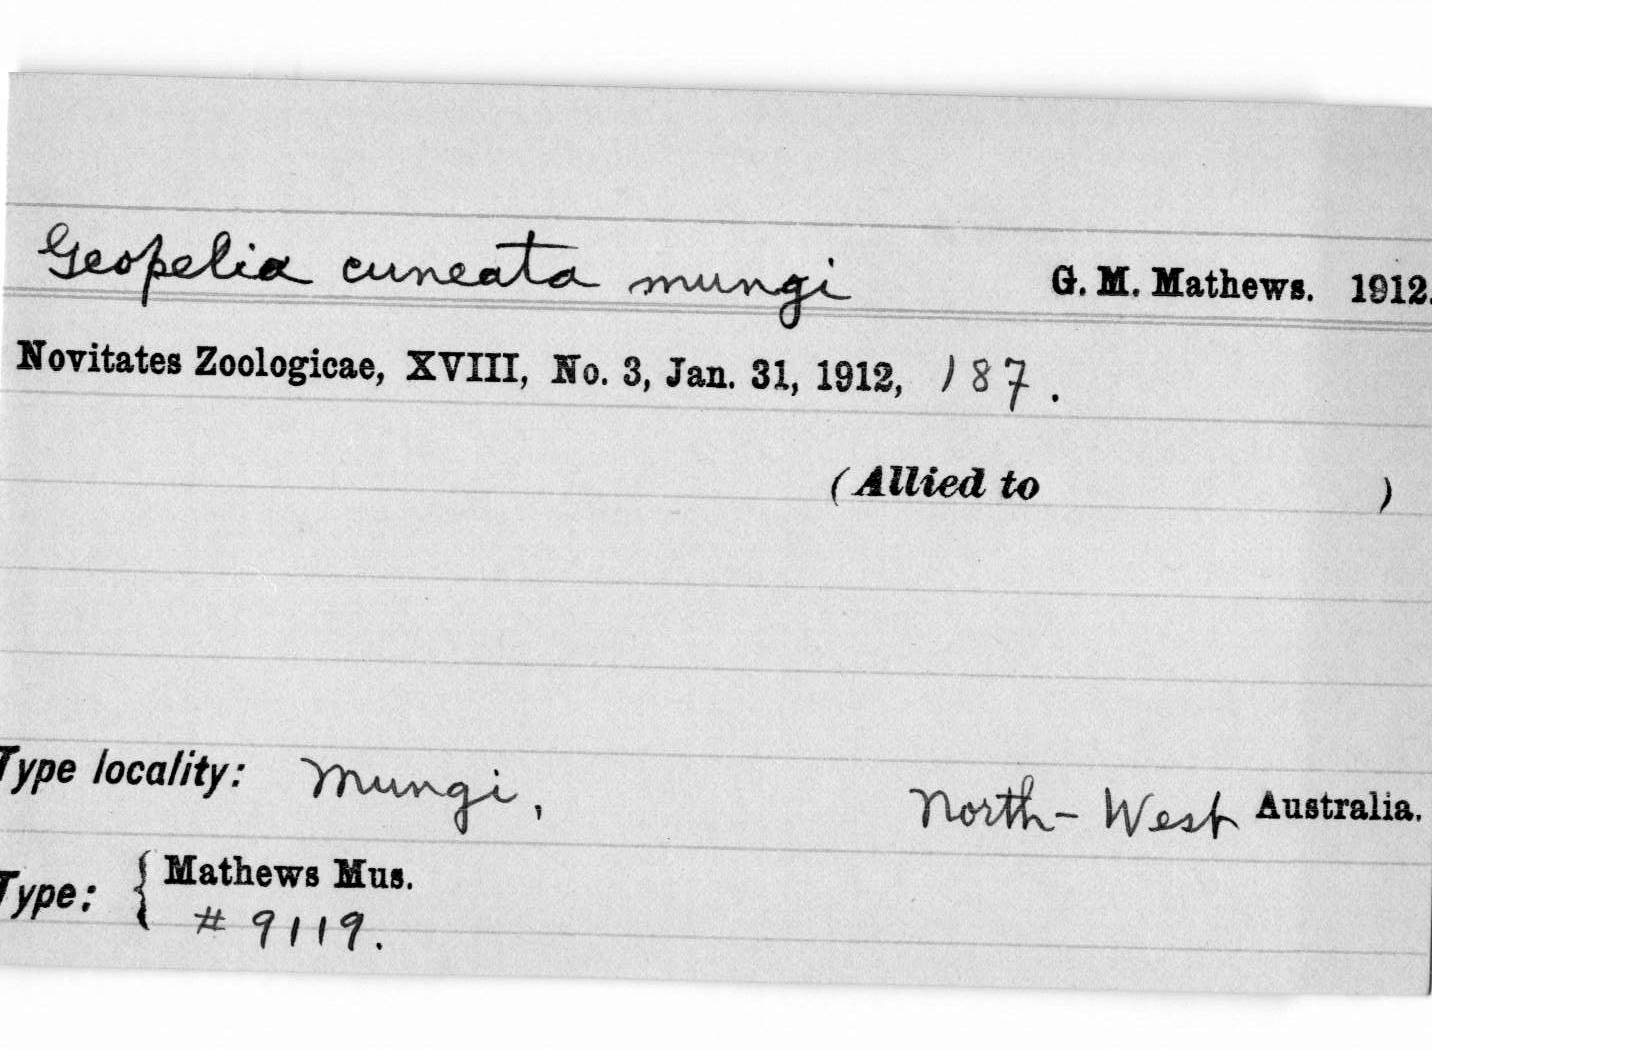 Geopelia cuneata mungi G. M. Mathews. 1912.
Novitates Zoologicae, XVIII, No. 3, Jan. 31, 1912, 187.
(Allied to )
Type locality: Mungi, North-West Australia.
Type: { Mathews Mus.
# 9119.